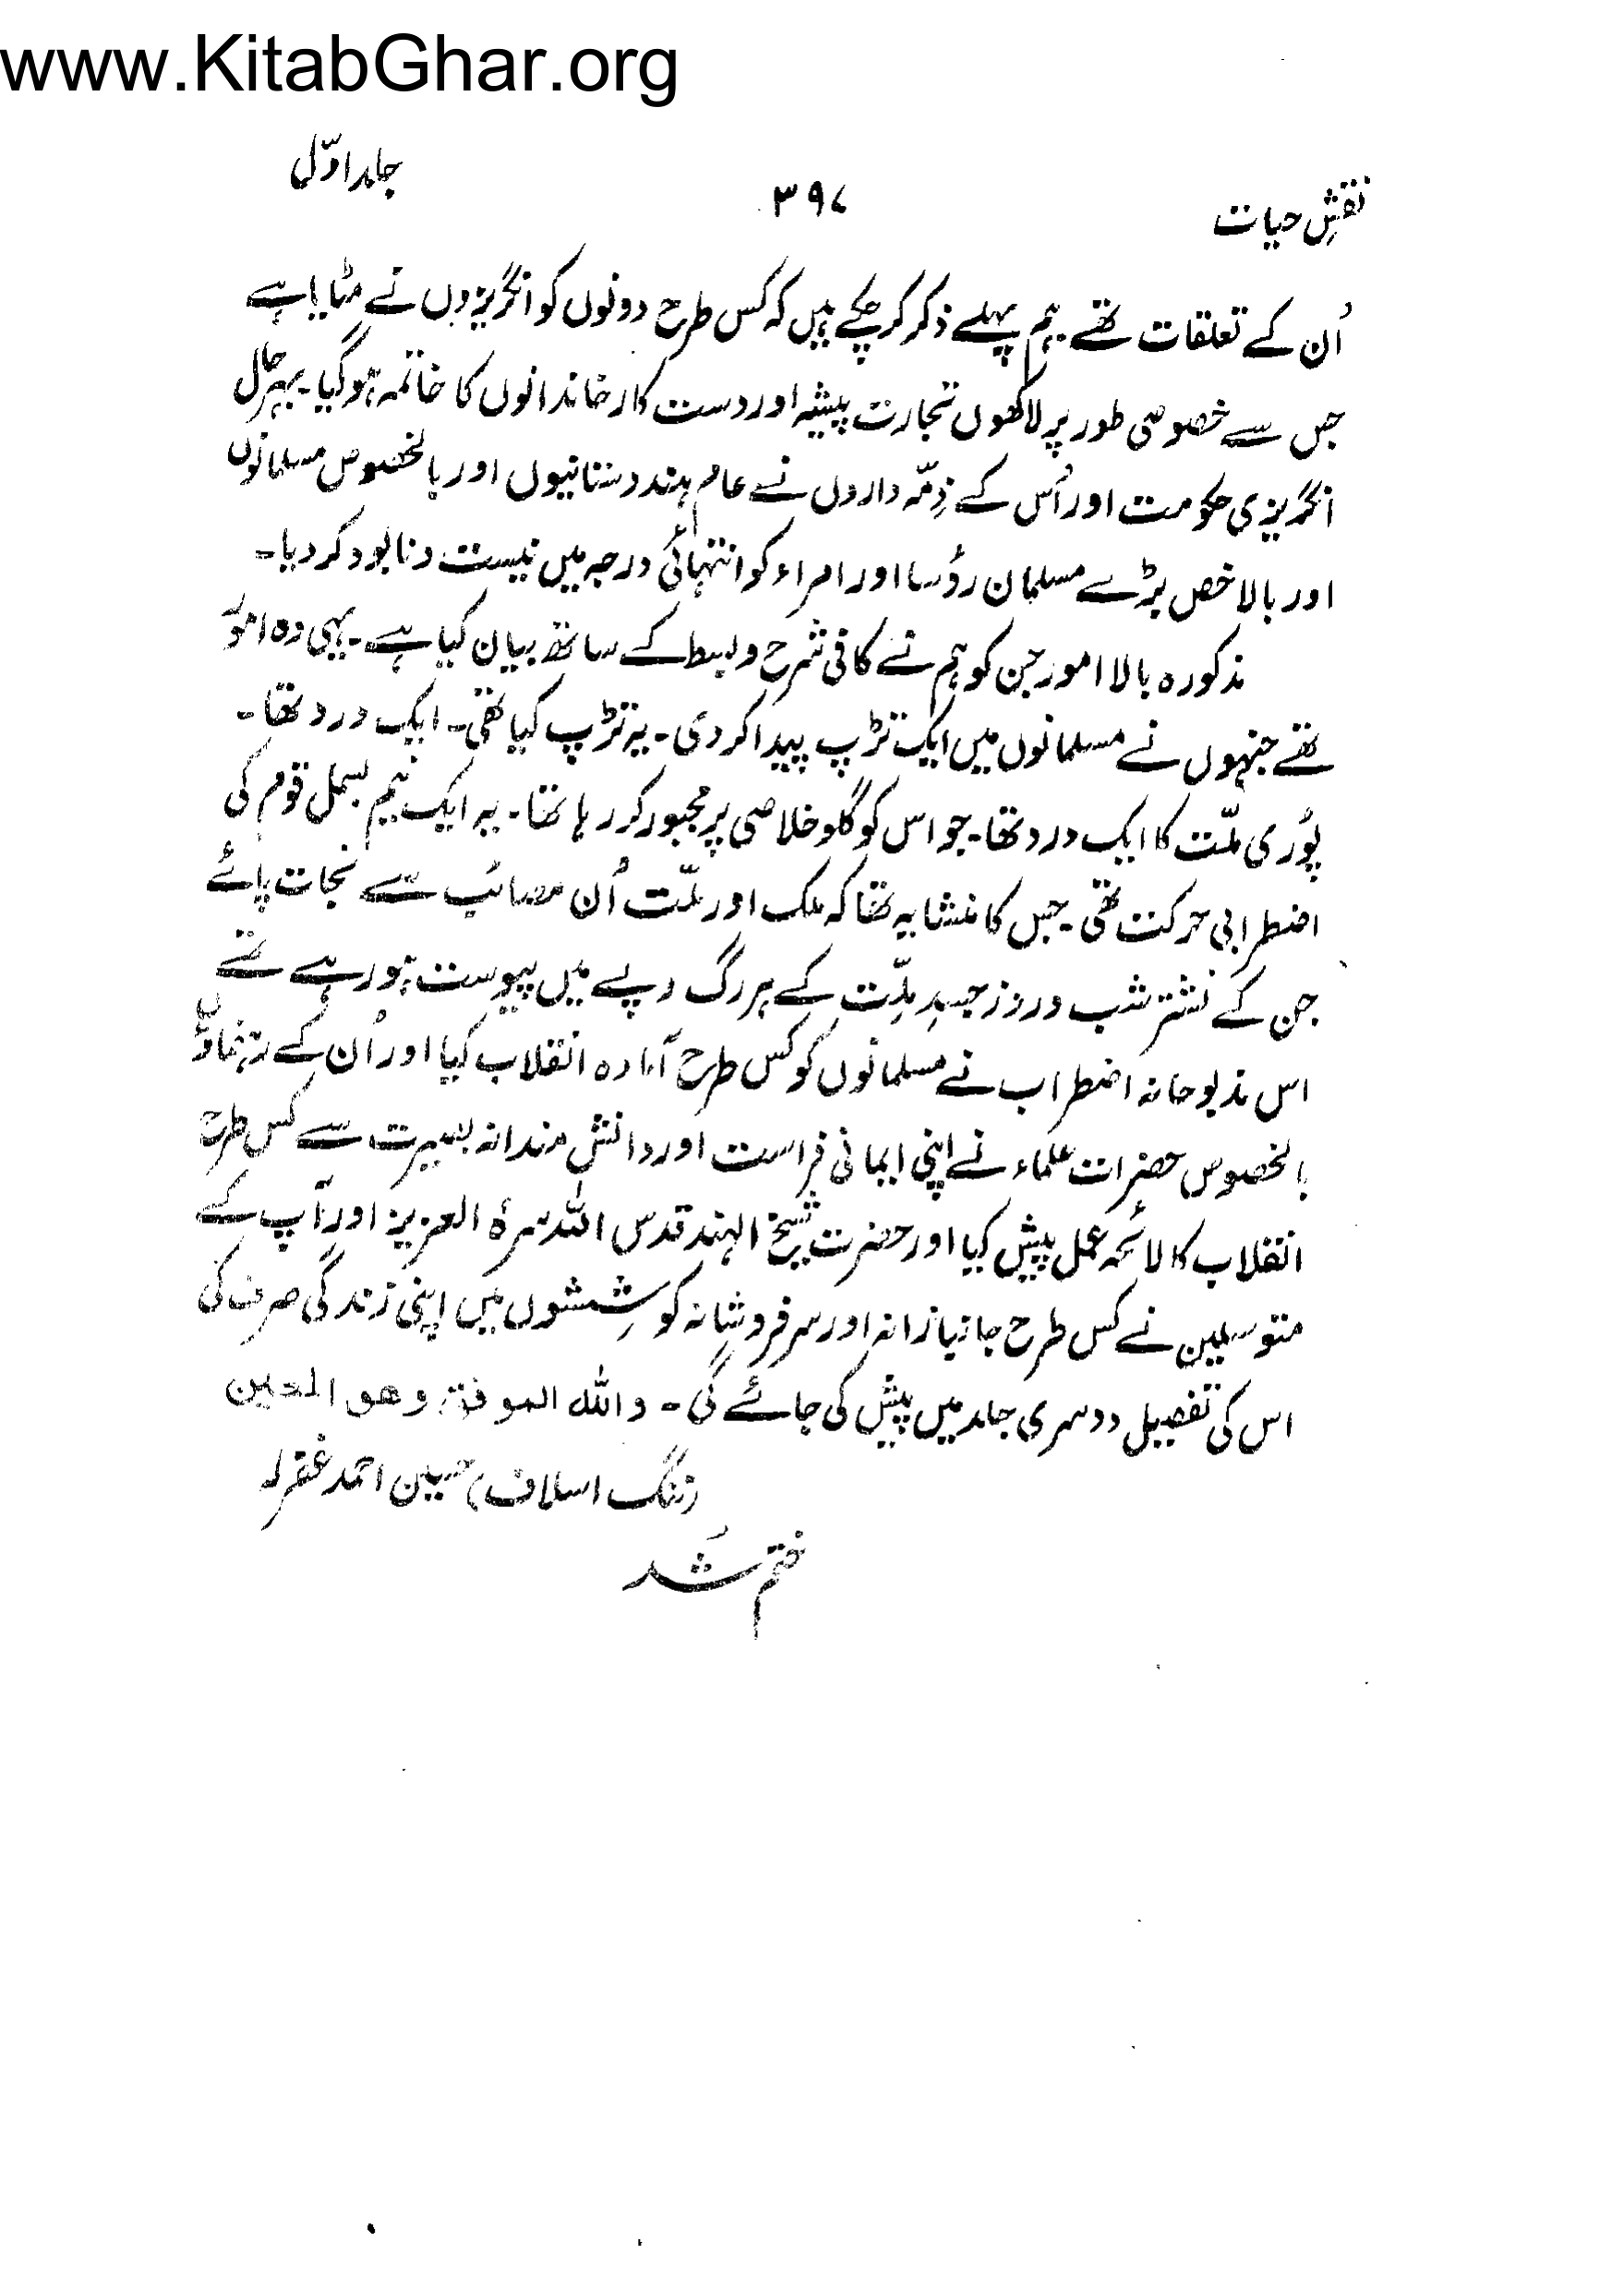 www.KitabGhar.org
نقشِ حیات ۳۹۷ جلد اوّل
اُن کے تعلقات تھے ہم پہلے ذکر کر چکے ہیں کہ کس طرح دونوں کو انگریزوں نے مٹایا ہے
جس سے خصوصی طور پر لاکھوں تجارت پیشہ اور دست کار خاندانوں کا خاتمہ ہوگیا۔ بہرحال
انگریزی حکومت اور اُس کے ذِمّہ داروں نے عام ہندوستانیوں اور بالخصوص مسلمانوں
اور بالاخص بڑے مسلمان رؤسا اور امراء کو انتہائی درجہ میں نیست و نابود کر دیا۔
مذکورہ بالا امور جن کو ہم نے کافی شرح و بسط کے ساتھ بیان کیا ہے۔ یہی وہ امور
تھے جنہوں نے مسلمانوں میں ایک تڑپ پیدا کر دی۔ یہ تڑپ کیا تھی۔ ایک درد تھا۔
پُوری ملّت کا ایک درد تھا۔ جو اس کو گلو خلاصی پر مجبور کر رہا تھا۔ یہ ایک نیم بسمل قوم کی
اضطرابی حرکت تھی۔ جس کا منشا یہ تھا کہ ملک اور ملّت اُن مصائب سے نجات پائے
جن کے نشتر شب و روز جسدِ ملِّت کے ہر رگ و پے میں پیوست ہو رہے تھے
اس مذبوحانہ اضطراب نے مسلمانوں کو کس طرح آمادہ انقلاب کیا اور اُن کے رہنماؤں
بالخصوص حضرات علماء نے اپنی ایمانی فراست اور دانش مندانہ بصیرت سے کس طرح
انقلاب کا لائحہ عمل پیش کیا اور حضرت شیخ الہند قدس اللہ سرہٗ العزیز اور آپ کے
متوسلین نے کس طرح جانبازانہ اور سرفروشانہ کوششوں میں اپنی زندگی صرف کی
اس کی تفصیل دوسری جلد میں پیش کی جائے گی۔ واللہ الموفق وھو المعین
(ننگ اسلاف) حسین احمد غفرلہ
ختم شد